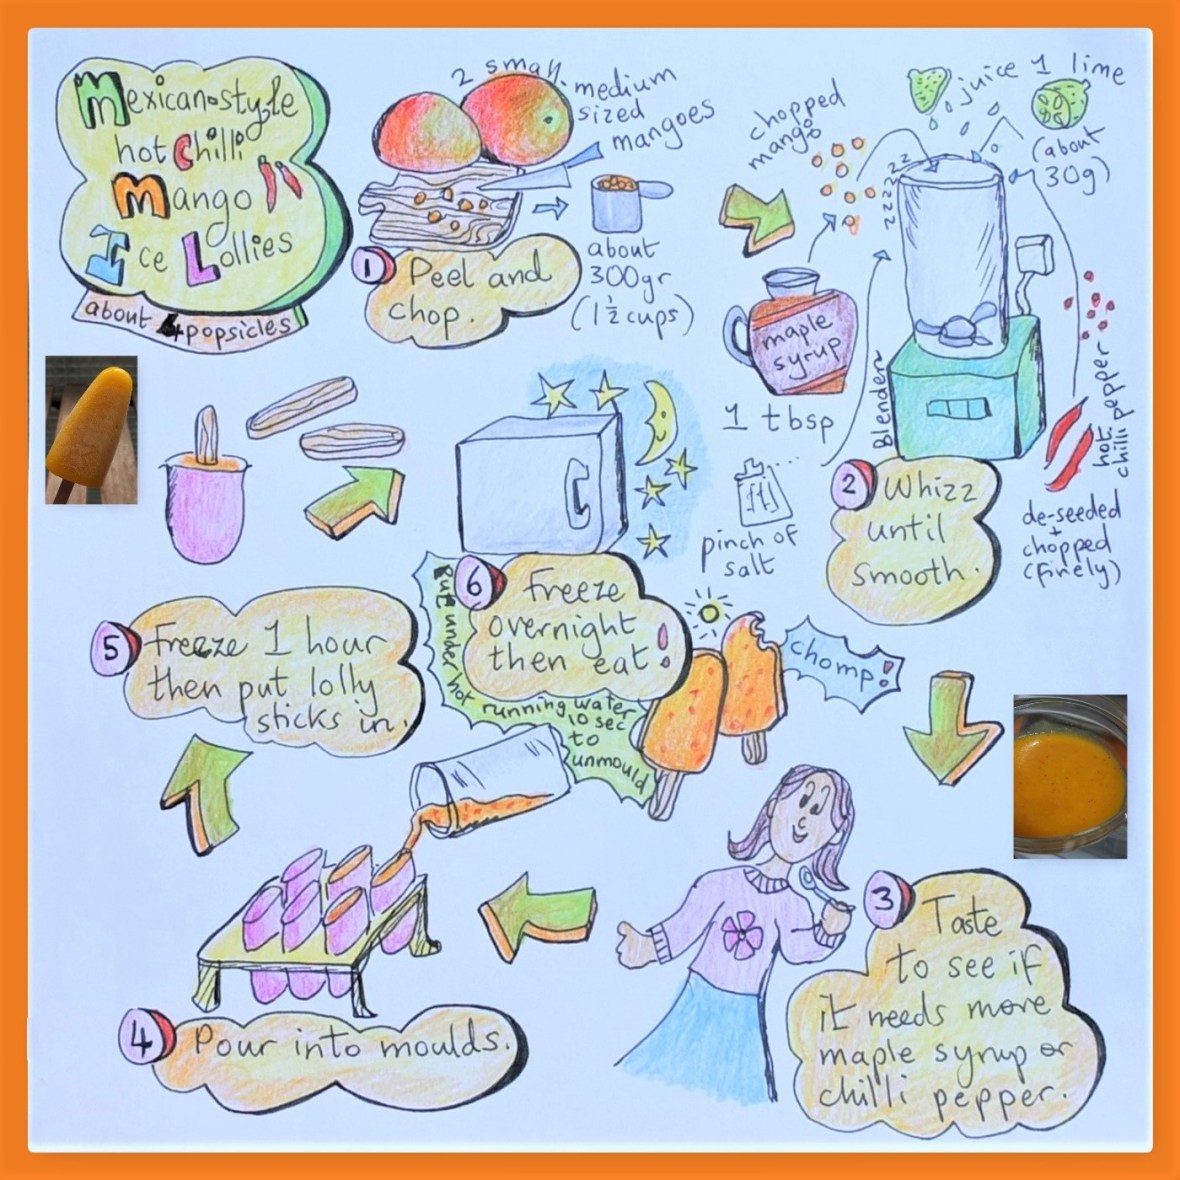 Mexican-style
hot Chilli
Mango
Ice Lollies
about 4 popsicles
2 small
medium
sized
mangoes
1 Peel and
chop.
about
300gr
(1½ cups)
chopped
mango
juice 1 lime
(about
30g)
zzzzzz
maple
syrup
1 tbsp
pinch of
salt
Blender
hot
chilli pepper
de-seeded
+
chopped
(finely)
2 Whizz
until
smooth.
3 Taste
to see if
it needs more
maple syrup or
chilli pepper.
4 Pour into moulds.
5 Freeze 1 hour
then put lolly
sticks in.
6 Freeze
overnight
then eat!
Put under hot running water
10 sec
to
unmould
chomp!